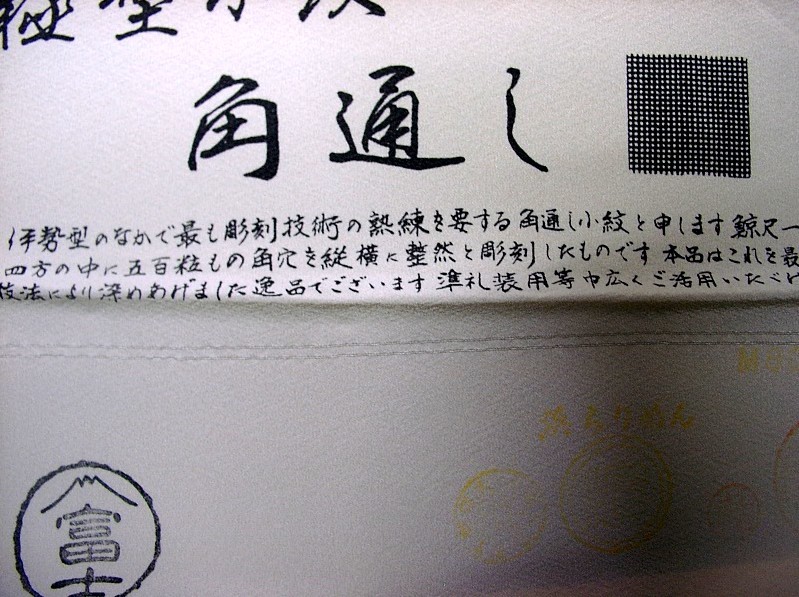 極型小紋
角通し
伊勢型のなかで最も彫刻技術の熟練を要する角通し小紋と申します鯨尺一
四方の中に五百粒もの角穴を縦横に整然と彫刻したものです本品はこれを最
技法により深めあげました逸品でございます準礼装用等巾広くご活用いただけ
浜ちりめん
富士